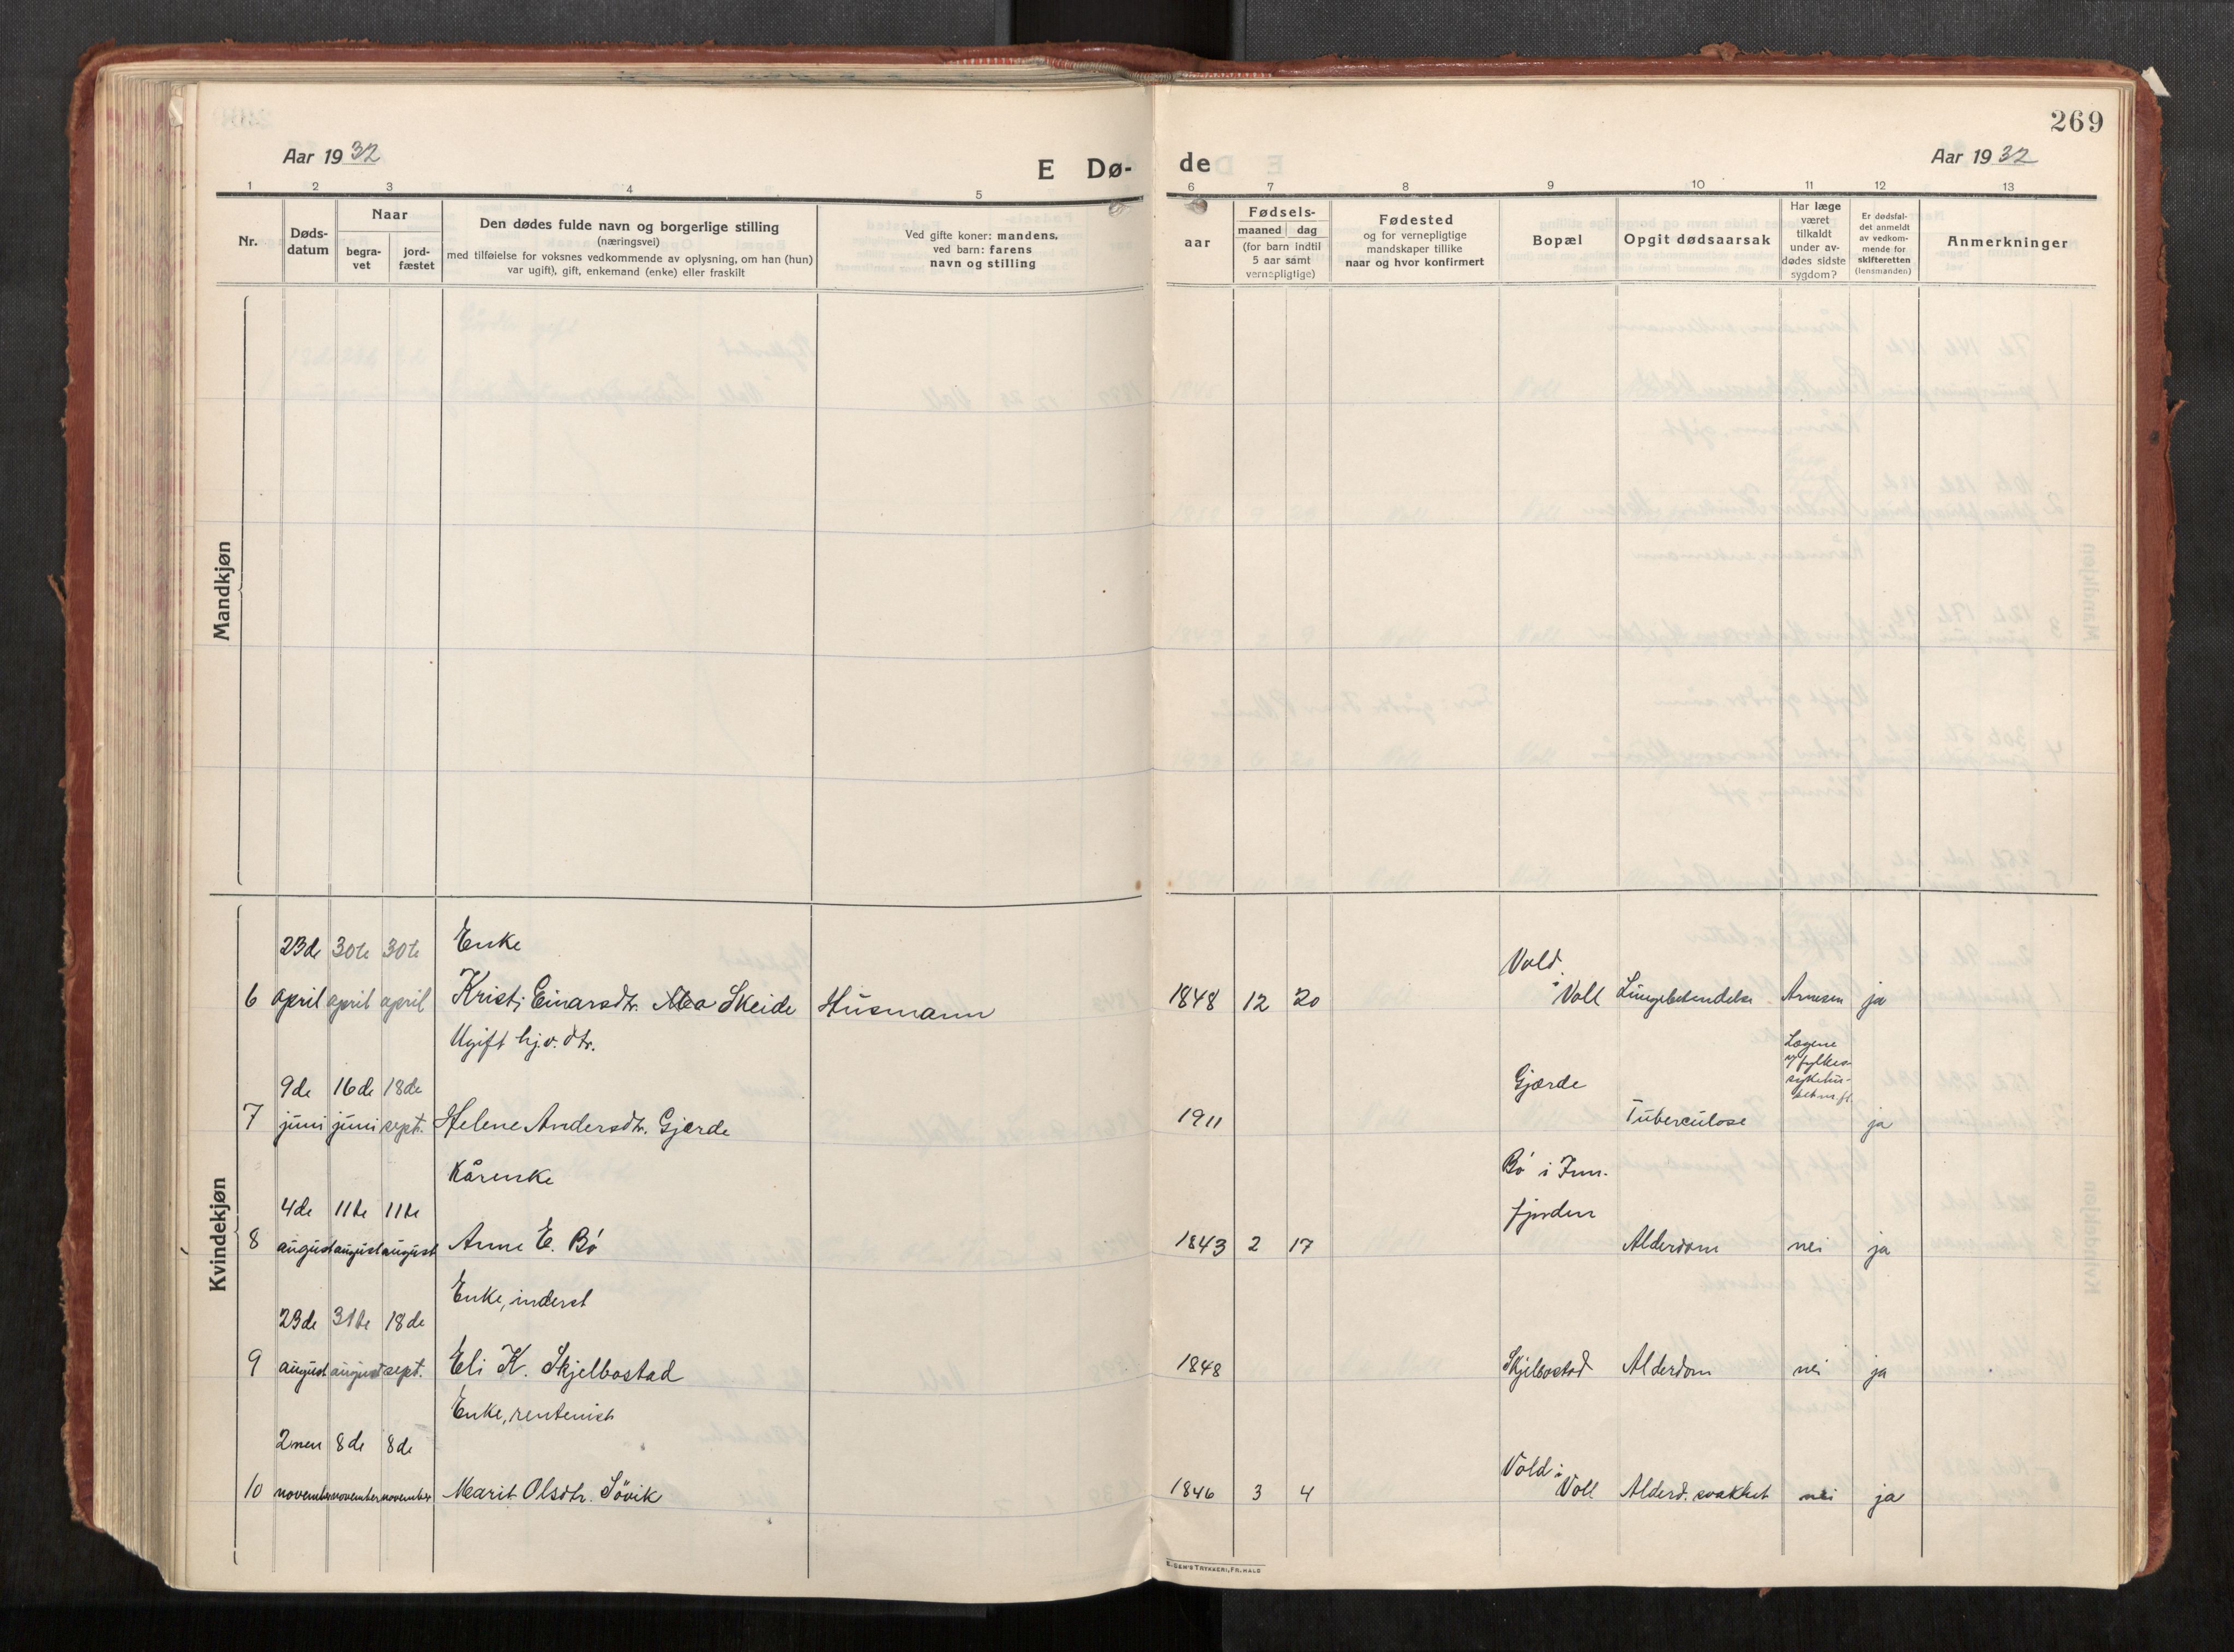 269
Aar 1932
E Dø-
de
Aar 1932
1 2 3 4 5 6 7 8 9 10 11 12 13
Nr.
Døds-
datum
Naar
begra-
vet
jord-
fæstet
Den dødes fulde navn og borgerlige stilling
(næringsvei)
med tilføielse for voksnes vedkommende av oplysning, om han (hun)
var ugift), gift, enkemand (enke) eller fraskilt
Ved gifte koner: mandens,
ved barn: farens
navn og stilling
aar
Fødsels-
maaned dag
(for barn indtil
5 aar samt
vernepligtige)
Fødested
og for vernepligtige
mandskaper tillike
naar og hvor konfirmert
Bopæl
Opgit dødsaarsak
Har læge
været
tilkaldt
under av-
dødes sidste
sygdom?
Er dødsfal-
det anmeldt
av vedkom-
mende for
skifteretten
(lensmanden)
Anmerkninger
Mandkjøn
Kvindekjøn
23de 30te 30te Enke
Vold i
6 april april april Kristi Einarsdtr. Skeide Husmann 1848 12 20 Voll Lungebetendelse Arnesen ja
Ugift hj.v. dtr.
Lægene
v/ fylkes-
sykehu-
9de 16de 18de Gjærde
7 juni juni sept. Helene Andersdtr. Gjærde 1911 Tuberculose ja
Kårenke
Bö i Inn-
4de 11te 11te fjorden
8 august august august Anne E. Bö 1843 2 17 Alderdom nei ja
Enke, inderst
23de 31te 18de
9 august august sept. Eli K. Skjelbostad 1848 Skjelbostad Alderdom nei ja
Enke, rentenist
2nen 8de 8de
Vold i
10 november november november Marit Olsdtr. Sövik 1846 3 4 Voll Alderd. svakhet nei ja
E. SEM'S TRYKKERI, FR.HALD